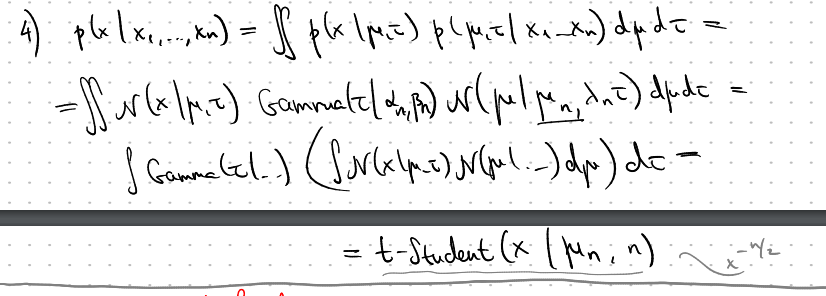 4) p(x | x₁,...,xₙ) = ∬ p(x | μ,τ) p(μ,τ | x₁...xₙ) dμ dτ =
= ∬ N(x | μ,τ) Gamma(τ | αₙ,βₙ) N(μ | μₙ, λₙτ) dμdτ =
∫ Gamma(τ|..) (∫ N(x|μ,τ) N(μ|...) dμ) dτ =
= t-Student (x | μₙ, n) x^{-n/2}